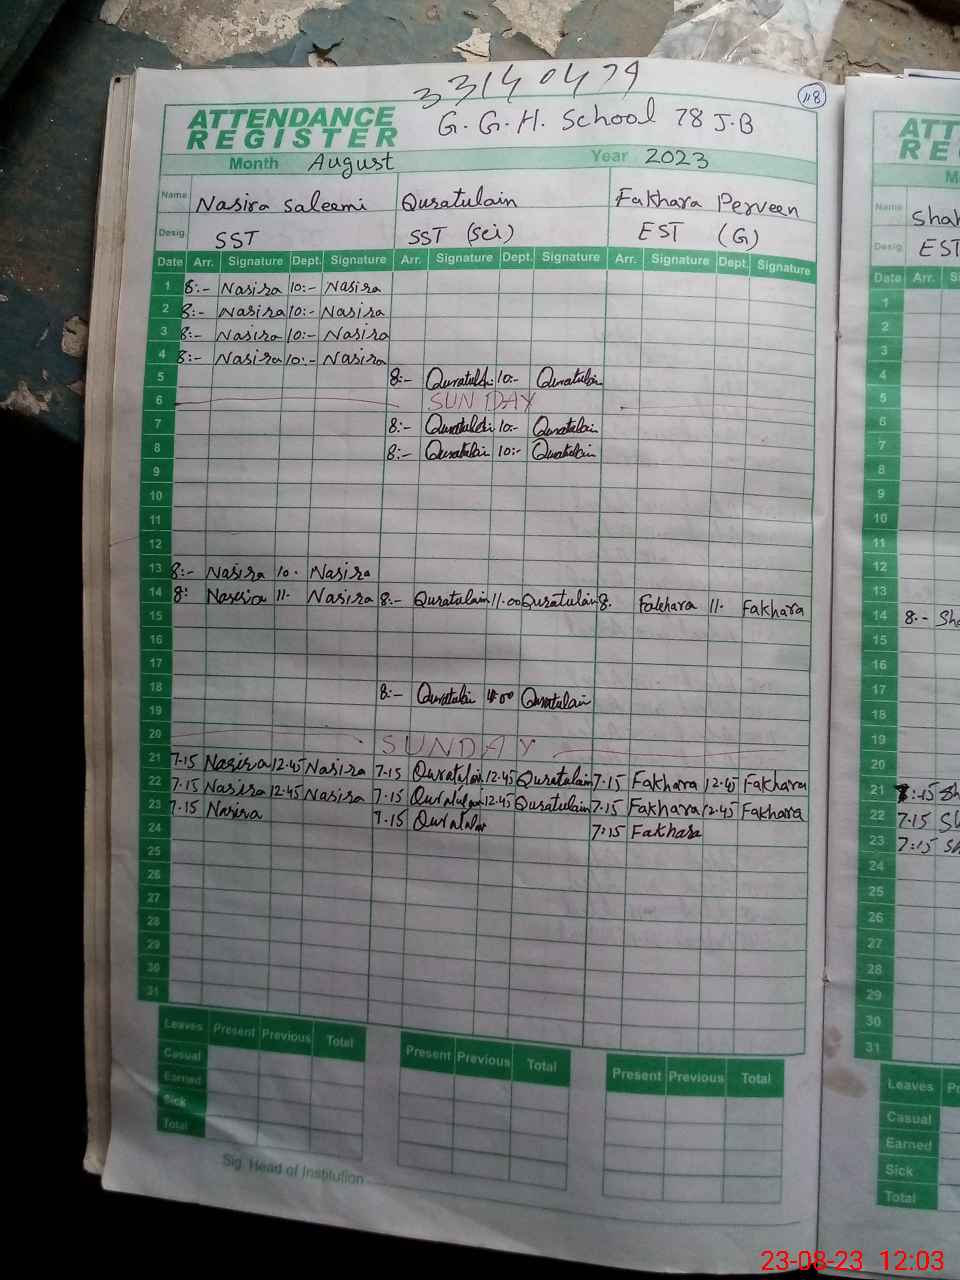 33140479
118
ATTENDANCE REGISTER
G.G.H. School 78 J.B
Month August Year 2023
Name Nasira Saleemi Quratulain Fakhara Perveen
Desig. SST SST (Sci) EST (G)
Date Arr. Signature Dept. Signature Arr. Signature Dept. Signature Arr. Signature Dept. Signature
1 8:- Nasira 10:- Nasira
2 8:- Nasira 10:- Nasira
3 8:- Nasira 10:- Nasira
4 8:- Nasira 10:- Nasira
5 8:- Quratulain 10:- Quratulain
6 SUNDAY
7 8:- Quratulain 10:- Quratulain
8 8:- Quratulain 10:- Quratulain
9
10
11
12
13 8:- Nasira 10. Nasira
14 8: Nasira 11. Nasira 8:- Quratulain 11.00 Quratulain 8. Fakhara 11. Fakhara
15
16
17
18 8:- Quratulain 00 Quratulain
19
20 SUNDAY
21 7.15 Nasira 12.45 Nasira 7.15 Quratulain 12.45 Quratulain 7.15 Fakhara 12.45 Fakhara
22 7.15 Nasira 12.45 Nasira 7.15 Quratulain 12.45 Quratulain 7.15 Fakhara 12.45 Fakhara
23 7.15 Nasira 7.15 Quratulain 7:15 Fakhara
24
25
26
27
28
29
30
31
Leaves Present Previous Total Present Previous Total Present Previous Total
Casual
Earned
Sick
Total
Sig. Head of Institution
ATT
RE
M
Name Shah
Desig. EST
Date Arr. Si
1
2
3
4
5
6
7
8
9
10
11
12
13
14 8.- Sha
15
16
17
18
19
20
21 :15 Sh
22 7.15 Sh
23 7:15 Sh
24
25
26
27
28
29
30
31
Leaves Pr
Casual
Earned
Sick
Total
23-08-23 12:03